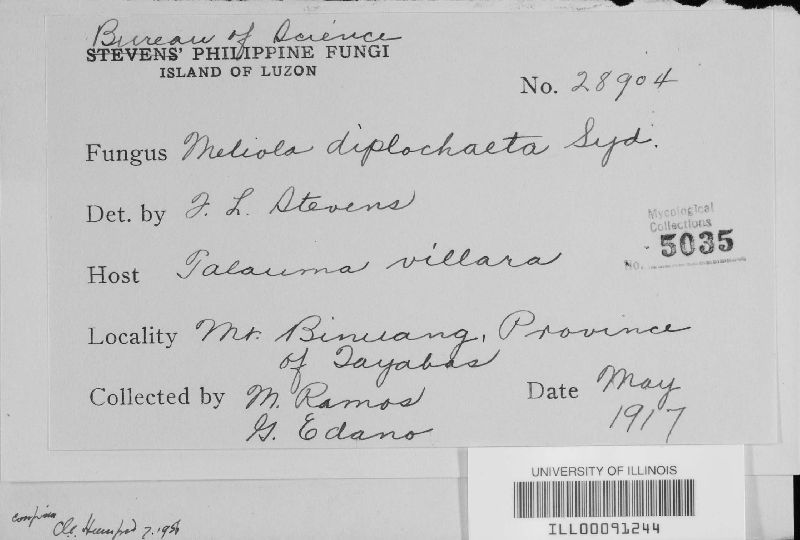 Bureau of Science
STEVENS' PHILIPPINE FUNGI
ISLAND OF LUZON
No. 28904
Fungus Meliola diplochaeta Syd.
Det. by F. L. Stevens
Mycological
Collections
No. 5035
Host Talauma villara
Locality Mt. Binuang, Province
of Tayabas
Collected by M. Ramos
G. Edano
Date May
1917
UNIVERSITY OF ILLINOIS
ILL00091244